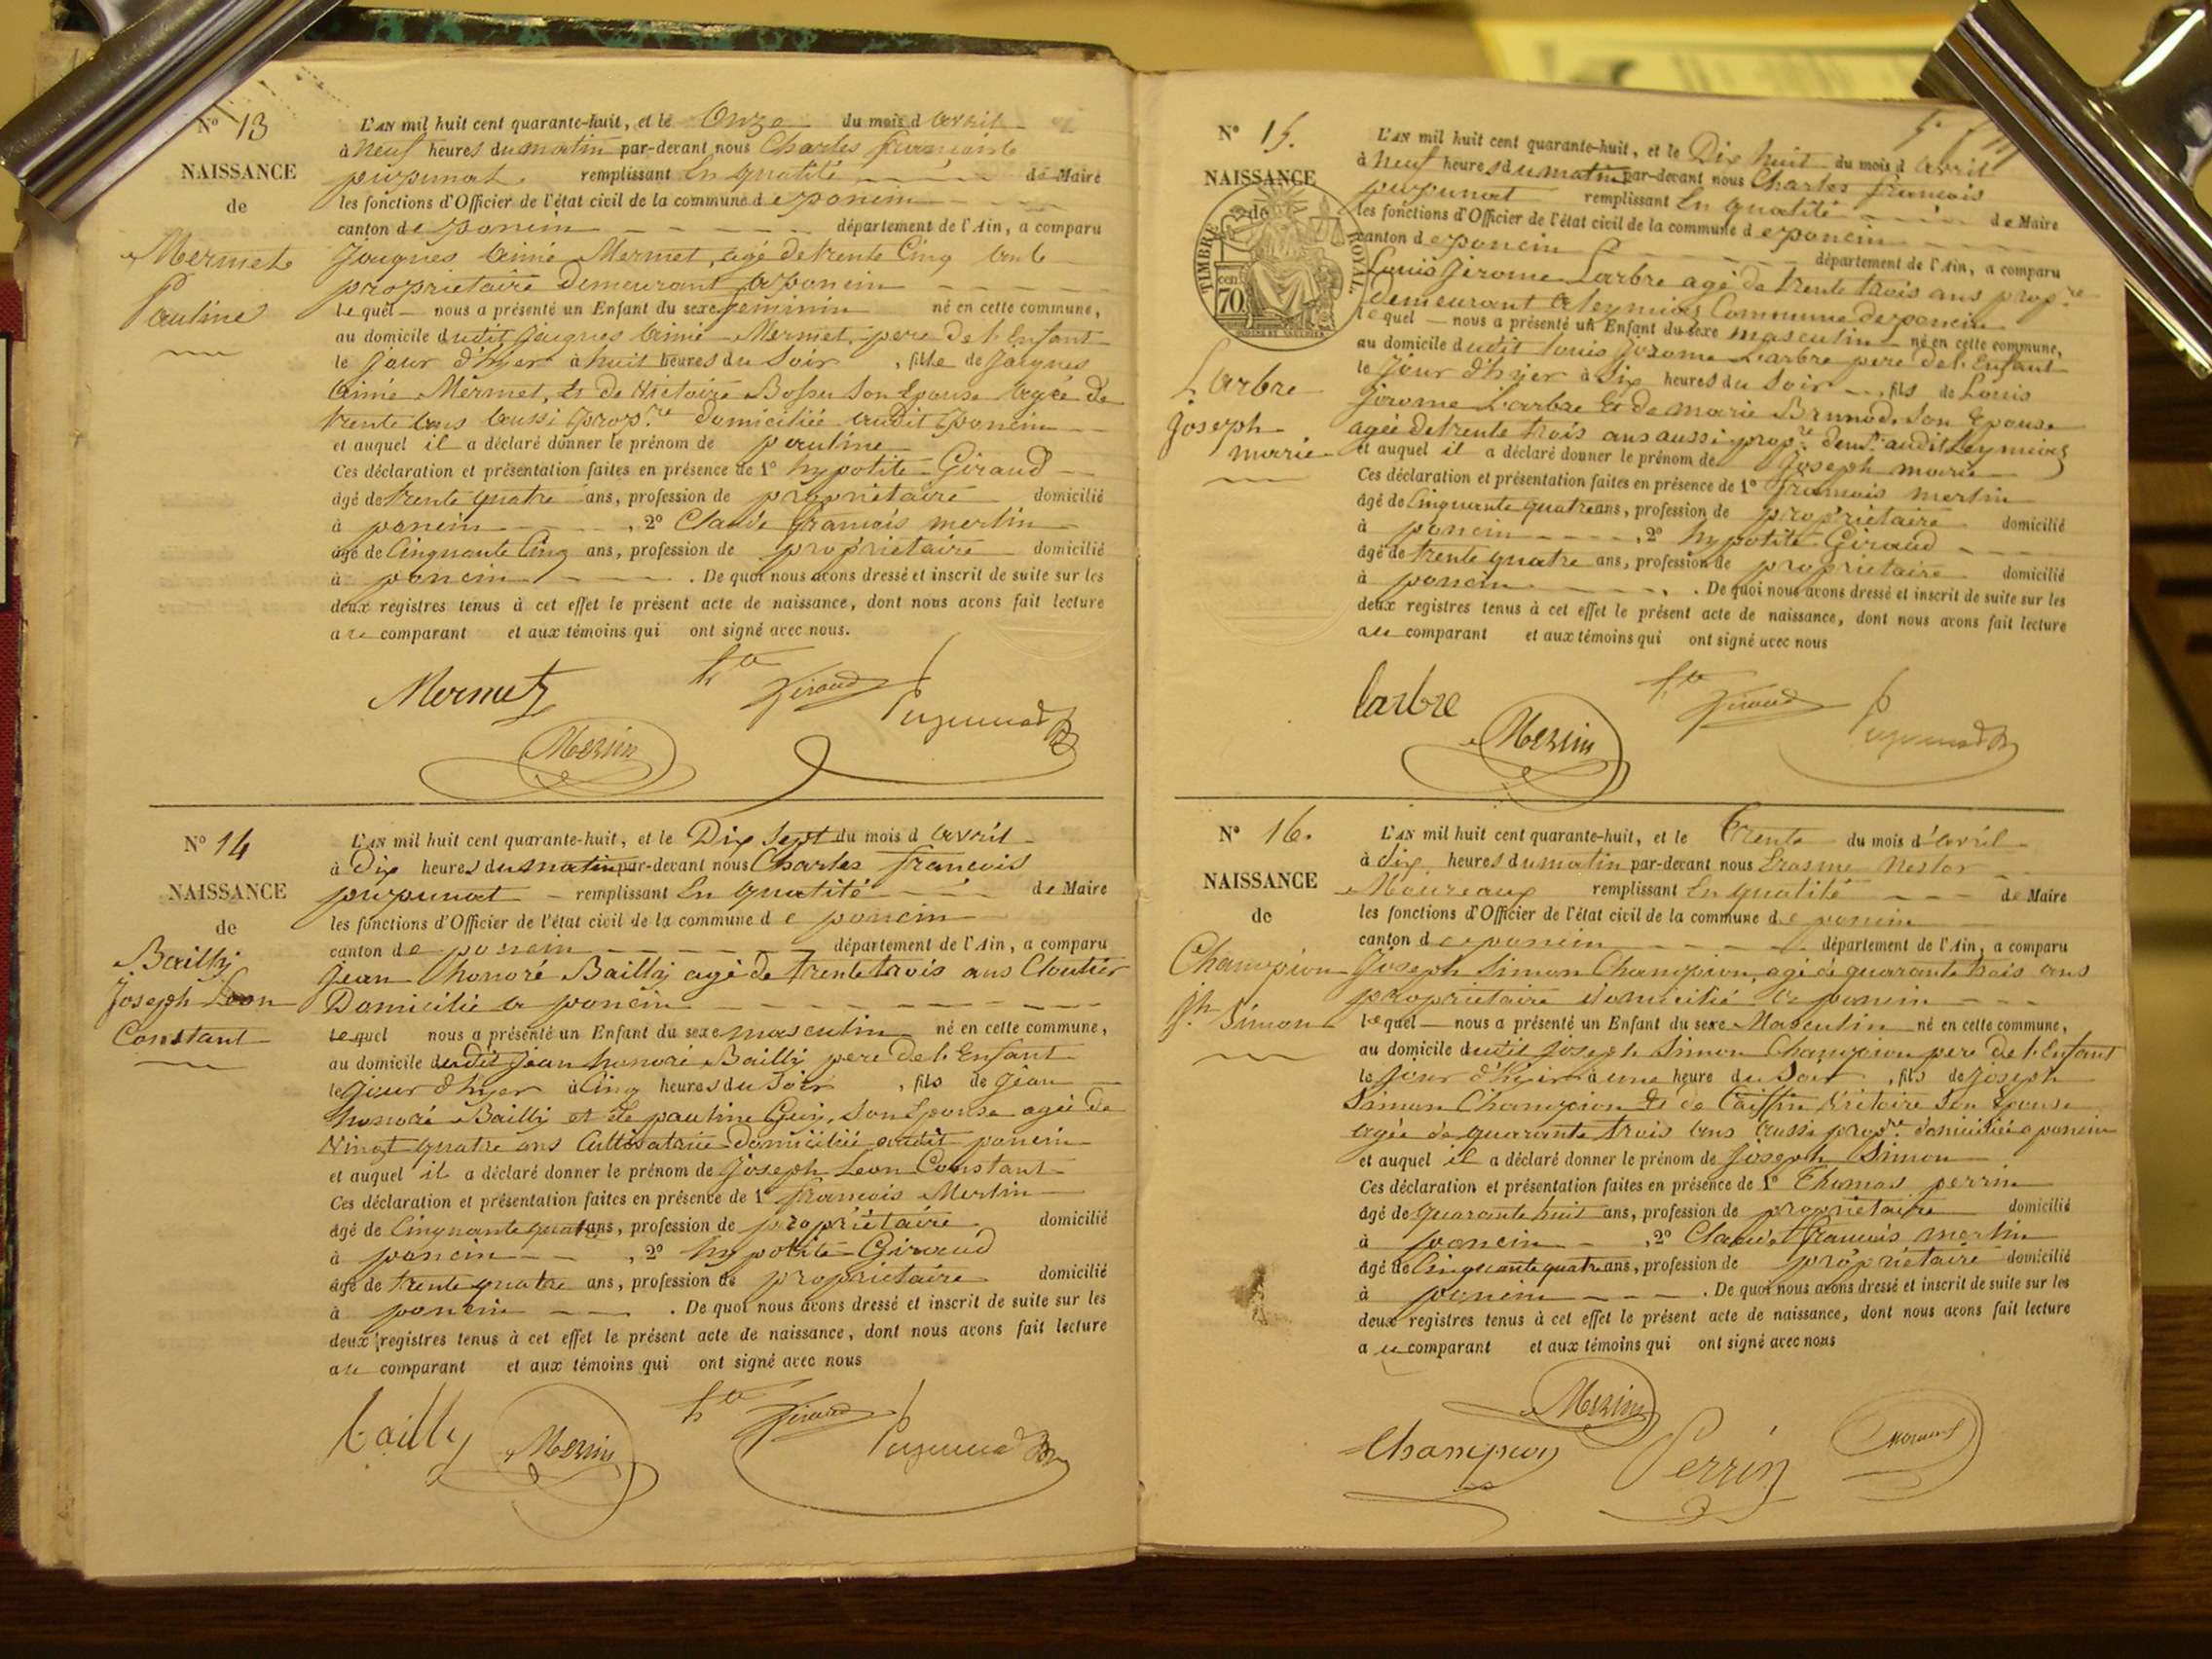 N° 13
NAISSANCE
de
Mermet
Pauline
L'AN mil huit cent quarante-huit, et le Onze du mois d avril
à Neuf heures du matin par-devant nous Charles francois
pupunat remplissant En qualité de Maire
les fonctions d'Officier de l'état civil de la commune d e poncin
canton d e poncin département de l'Ain, a comparu
Jaques Aimé Mermet, agé de trente Cinq ans
proprietaire Demeurant a poncin
lequel nous a présenté un Enfant du sexe feminin né en cette commune,
au domicile dudit Jaques Aimé Mermet, pere de l'Enfant
le Jour d'hyer à huit heures du Soir, fille de Jaques
Aimé Mermet, et de Victoire Bossu son Epouse agée de
trente ans aussi prop.re domiciliée audit poncin
et auquel il a déclaré donner le prénom de pauline
Ces déclaration et présentation faites en présence de 1° hypolite Giraud
âgé de trente quatre ans, profession de proprietaire domicilié
à poncin, 2° Claude francois merlin
âgé de Cinquante Cinq ans, profession de proprietaire domicilié
à poncin. De quoi nous avons dressé et inscrit de suite sur les
deux registres tenus à cet effet le présent acte de naissance, dont nous avons fait lecture
au comparant et aux témoins qui ont signé avec nous.
Mermet hte Giraud Pupunat
Merlin
N° 14
NAISSANCE
de
Bailly
Joseph Leon
Constant
L'AN mil huit cent quarante-huit, et le Dix Sept du mois d avril
à Dix heures du matin par-devant nous Charles francois
pupunat remplissant En qualité de Maire
les fonctions d'Officier de l'état civil de la commune d e poncin
canton d e poncin département de l'Ain, a comparu
jean honoré Bailly agé de trente trois ans Cloutier
Domicilié a poncin
Lequel nous a présenté un Enfant du sexe masculin né en cette commune,
au domicile dudit jean honoré Bailly pere de l'Enfant
le jour d'hyer à Cinq heures du Soir, fils de jean
honoré Bailly et de pauline Guy, son Epouse agée de
Vingt quatre ans Cultivatrice domiciliée audit poncin
et auquel il a déclaré donner le prénom de Joseph Leon Constant
Ces déclaration et présentation faites en présence de 1° francois Merlin
âgé de Cinquante quatre ans, profession de propriétaire domicilié
à poncin, 2° hypolite Giraud
âgé de trente quatre ans, profession de proprietaire domicilié
à poncin. De quoi nous avons dressé et inscrit de suite sur les
deux registres tenus à cet effet le présent acte de naissance, dont nous avons fait lecture
au comparant et aux témoins qui ont signé avec nous
bailly Merlin hte Giraud Pupunat
N° 15.
NAISSANCE
de
TIMBRE ROYAL
70
Larbre
Joseph
marie
L'AN mil huit cent quarante-huit, et le Dix huit du mois d avril
à Neuf heures du matin par-devant nous Charles francois
pupunat remplissant En qualité de Maire
les fonctions d'Officier de l'état civil de la commune d e poncin
canton d e poncin département de l'Ain, a comparu
Louis Jerome Larbre agé de trente trois ans prop.re
demeurant a leymiat Commune de poncin
lequel nous a présenté un Enfant du sexe masculin né en cette commune,
au domicile dudit louis jerome Larbre pere de l'Enfant
le Jour d'hyer à Six heures du Soir, fils de Louis
jerome Larbre Et de marie Brunod, son Epouse
agée de trente trois ans aussi prop.re dem.t audit Leymiat
et auquel il a déclaré donner le prénom de Joseph marie
Ces déclaration et présentation faites en présence de 1° francois merlin
âgé de Cinquante quatre ans, profession de propriétaire domicilié
à poncin, 2° hypolite Giraud
âgé de trente quatre ans, profession de proprietaire domicilié
à poncin. De quoi nous avons dressé et inscrit de suite sur les
deux registres tenus à cet effet le présent acte de naissance, dont nous avons fait lecture
au comparant et aux témoins qui ont signé avec nous
larbre hte Giraud Pupunat
Merlin
N° 16.
NAISSANCE
de
Champion
Jh. Simon
L'AN mil huit cent quarante-huit, et le Trente du mois d'avril
à dix heures du matin par-devant nous Erasme Nestor
remplissant En qualité de Maire
les fonctions d'Officier de l'état civil de la commune d e poncin
canton d e poncin département de l'Ain, a comparu
Joseph Simon Champion, agé de quarante trois ans
proprietaire domicilié a poncin
lequel nous a présenté un Enfant du sexe Masculin né en cette commune,
au domicile dudit Joseph Simon Champion pere de l'Enfant
le Jour d'hyer à une heure du Soir, fils de Joseph
Simon Champion Et de Victoire son Epouse
agée de quarante trois ans aussi prop.re domiciliée a poncin
et auquel il a déclaré donner le prénom de Joseph Simon
Ces déclaration et présentation faites en présence de 1° Thomas perrin
âgé de quarante huit ans, profession de proprietaire domicilié
à poncin, 2° Claude francois merlin
âgé de Cinquante quatre ans, profession de propriétaire domicilié
à poncin. De quoi nous avons dressé et inscrit de suite sur les
deux registres tenus à cet effet le présent acte de naissance, dont nous avons fait lecture
au comparant et aux témoins qui ont signé avec nous
Merlin
Champion Perrin